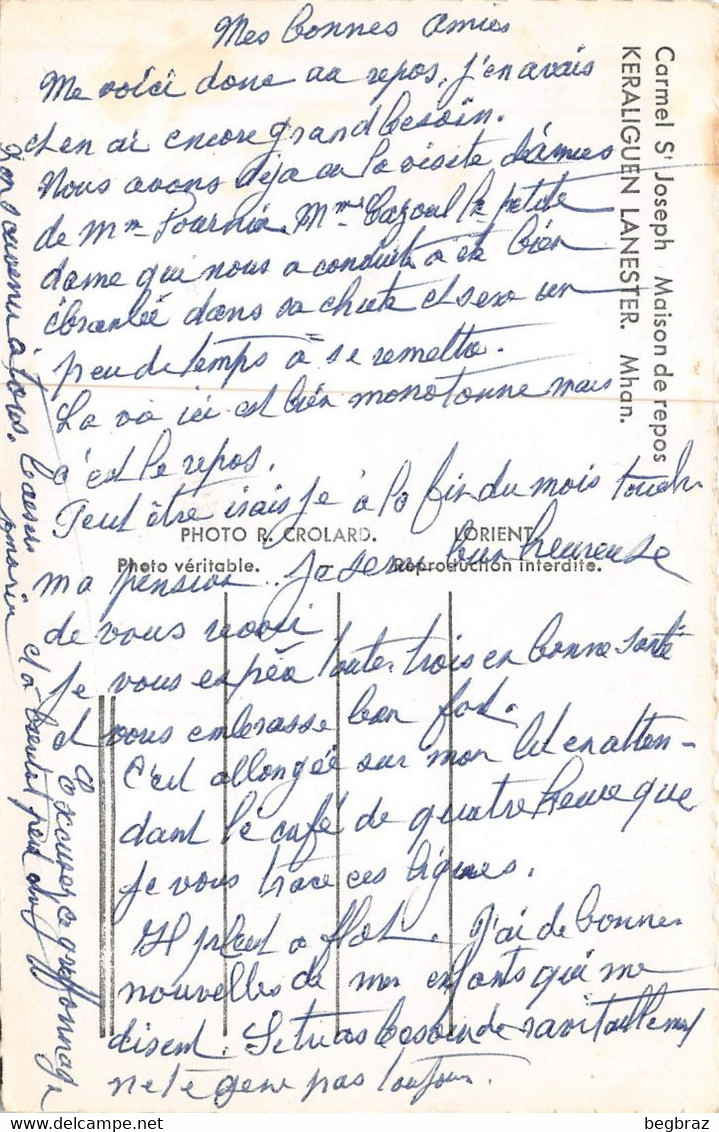 Mes bonnes amies
Me voici donc au repos, j'en avais
et en ai encore grand besoin.
Nous avons deja eu la visite d'amies
de Mme Fournier. Mme la petite
dame qui nous a conduit a été bien
ébranlée dans sa chute et sera un
peu de temps à se remettre.
La vie ici est bien monotonne mais
c'est le repos.
Peut être irais je à la fin du mois touch
ma pension. Je serai bien heureuse
de vous revoir
Je vous espère toutes trois en bonne santé
et vous embrasse bien fort.
C'est allongée sur mon lit en atten-
dant le café de quatre heure que
je vous trace ces lignes.
Il pleut a flot. J'ai de bonnes
nouvelles de mes enfants qui me
disent. Si tu as besoin de ravitaillement
ne te gene pas toujours.
Excusez ce griffonnage
Bon souvenir à tous.
et à bientot
Carmel St Joseph Maison de repos
KERALIGUEN LANESTER. Mhan.
PHOTO R. CROLARD. LORIENT
Photo véritable. — Reproduction interdite.
begbraz